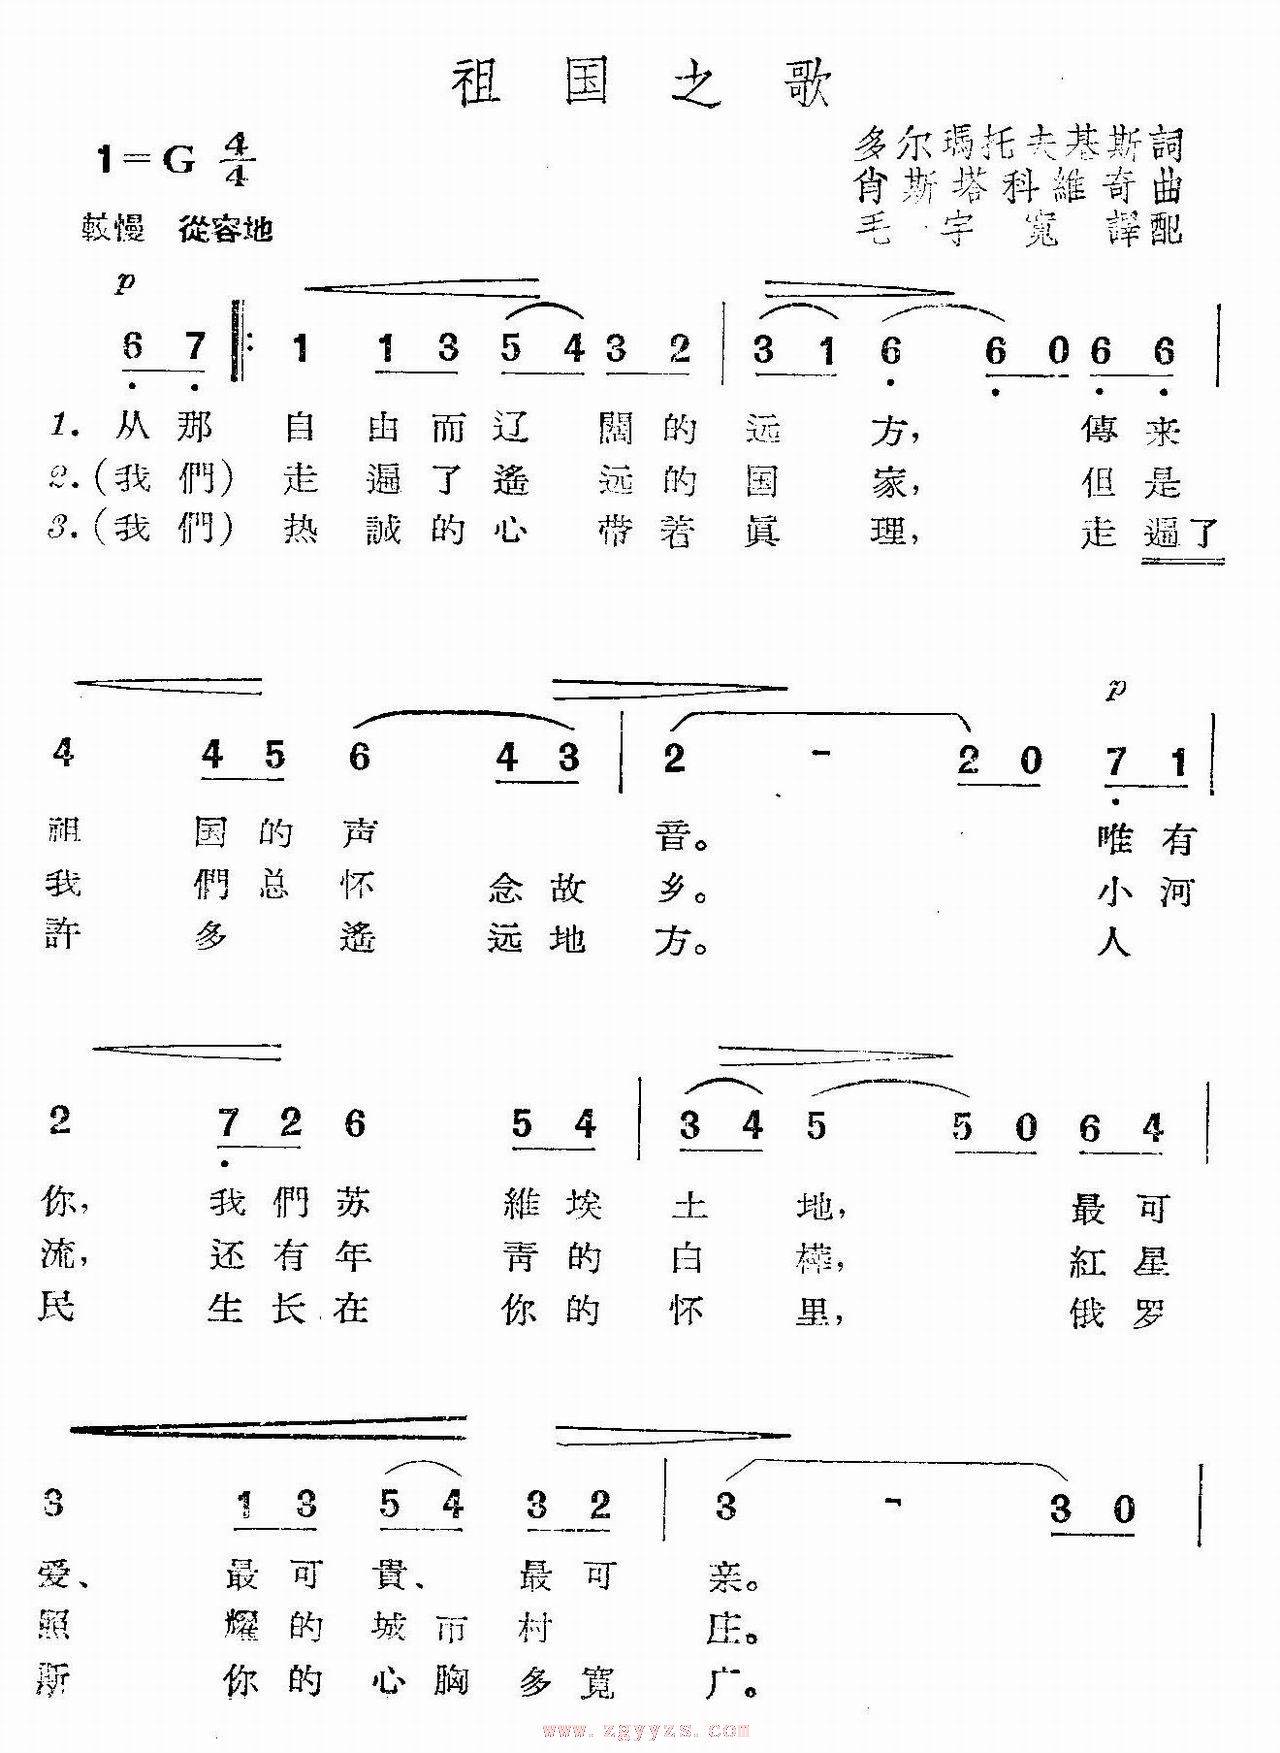 祖国之歌
1=G 4/4
多尔瑪托夫基斯詞
肖斯塔科維奇曲
較慢 從容地
毛宇寬譯配
p
6 7 1 1 3 5 4 3 2 3 1 6 6 0 6 6
1. 从那自由而辽闊的远方，傳来
2.(我們)走遍了遙远的国家，但是
3.(我們)热誠的心带着眞理，走遍了
p
4 4 5 6 4 3 2 - 2 0 7 1
祖国的声音。唯有
我們总怀念故乡。小河
許多遙远地方。人
2 7 2 6 5 4 3 4 5 5 0 6 4
你，我們苏維埃土地，最可
流，还有年靑的白樺，紅星
民生长在你的怀里，俄罗
3 1 3 5 4 3 2 3 - 3 0
爱、最可貴、最可亲。
照耀的城市村庄。
斯你的心胸多寬广。
www.zgyyzs.com